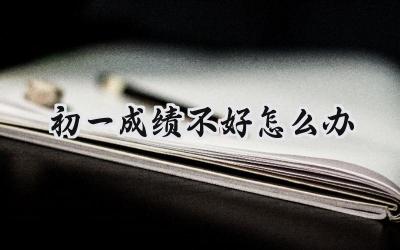 初一成绩不好怎么办